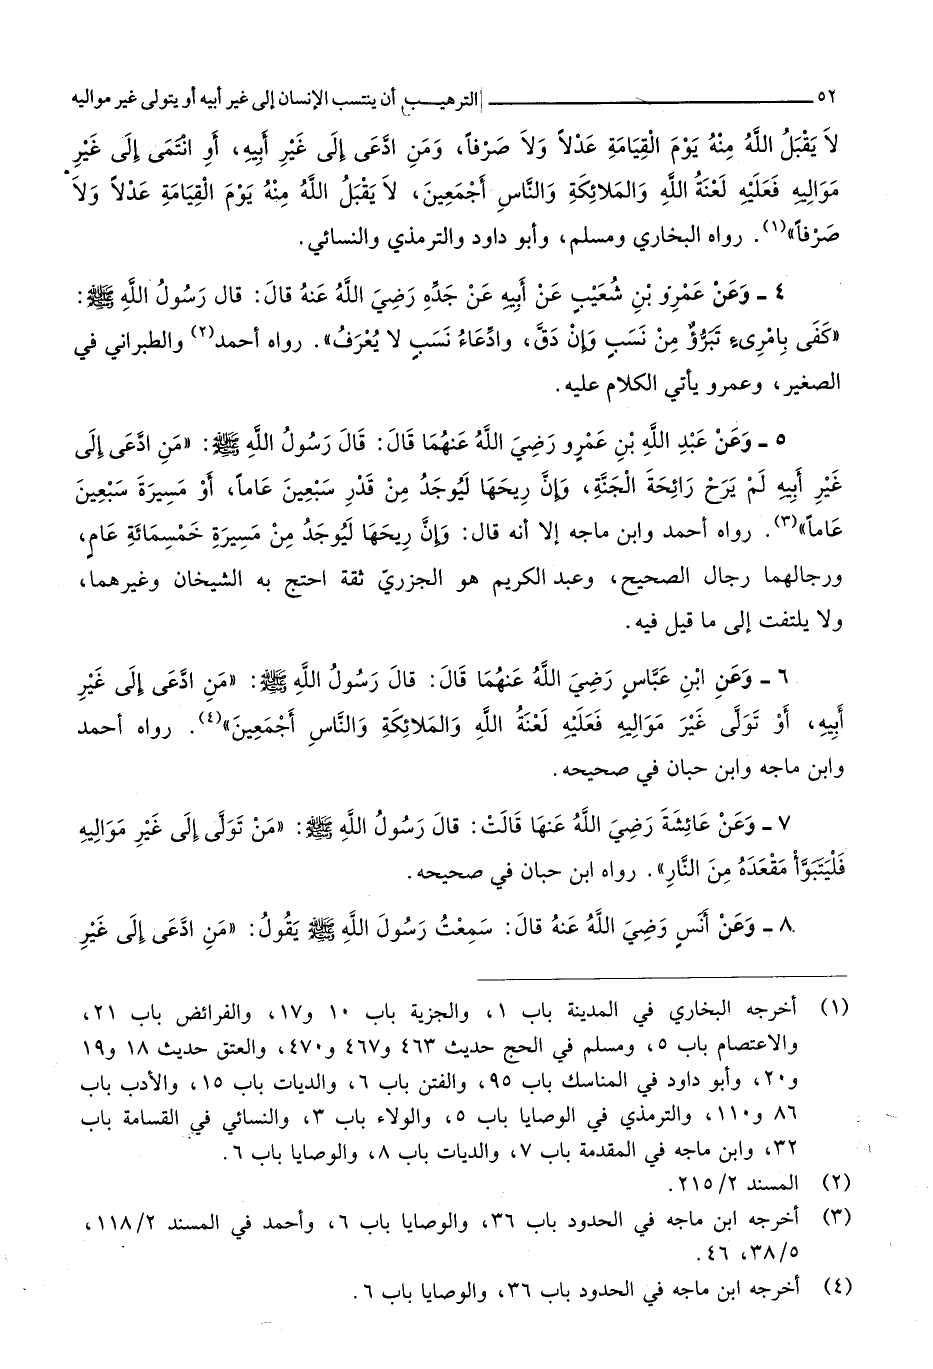 ٥٢ ــــــــ الترهيـب أن ينتسب الإنسان إلى غير أبيه أو يتولى غير مواليه
لاَ يَقْبَلُ اللَّهُ مِنْهُ يَوْمَ الْقِيَامَةِ عَدْلاً وَلاَ صَرْفاً، وَمَنِ ادَّعَى إِلَى غَيْرِ أَبِيهِ، أَوِ انْتَمَى إِلَى غَيْرِ
مَوَالِيهِ فَعَلَيْهِ لَعْنَةُ اللَّهِ وَالمَلائِكَةِ وَالنَّاسِ أَجْمَعِينَ، لاَ يَقْبَلُ اللَّهُ مِنْهُ يَوْمَ الْقِيَامَةِ عَدْلاً وَلاَ
صَرْفاً»(١). رواه البخاري ومسلم، وأبو داود والترمذي والنسائي.
٤ ـ وَعَنْ عَمْرِو بْنِ شُعَيْبٍ عَنْ أَبِيهِ عَنْ جَدِّهِ رَضِيَ اللَّهُ عَنهُ قالَ: قال رَسُولُ اللَّهِ ﷺ:
«كَفَى بِامْرِىءٍ تَبَرُّؤٌ مِنْ نَسَبٍ وَإِنْ دَقَّ، وادِّعَاءُ نَسَبٍ لا يُعْرَفُ». رواه أحمد(٢) والطبراني في
الصغير، وعمرو يأتي الكلام عليه.
٥ ـ وَعَنْ عَبْدِ اللَّهِ بْنِ عَمْرٍو رَضِيَ اللَّهُ عَنهُمَا قَالَ: قَالَ رَسُولُ اللَّهِ ﷺ: «مَنِ ادَّعَى إِلَى
غَيْرِ أَبِيهِ لَمْ يَرَحْ رَائِحَةَ الْجَنَّةِ، وَإِنَّ رِيحَهَا لَيُوجَدُ مِنْ قَدْرِ سَبْعِينَ عَاماً، أَوْ مَسِيرَةَ سَبْعِينَ
عَاماً»(٣). رواه أحمد وابن ماجه إلا أنه قال: وَإِنَّ رِيحَهَا لَيُوجَدُ مِنْ مَسِيرَةِ خَمْسِمائَةِ عَامٍ،
ورجالهما رجال الصحيح، وعبد الكريم هو الجزريّ ثقة احتج به الشيخان وغيرهما،
ولا يلتفت إلى ما قيل فيه.
٦ ـ وَعَنِ ابْنِ عَبَّاسٍ رَضِيَ اللَّهُ عَنهُمَا قَالَ: قالَ رَسُولُ اللَّهِ ﷺ: «مَنِ ادَّعَى إِلَى غَيْرِ
أَبِيهِ، أَوْ تَوَلَّى غَيْرَ مَوَالِيهِ فَعَلَيْهِ لَعْنَةُ اللَّهِ وَالمَلائِكَةِ وَالنَّاسِ أَجْمَعِينَ»(٤). رواه أحمد
وابن ماجه وابن حبان في صحيحه.
٧ ـ وَعَنْ عَائِشَةَ رَضِيَ اللَّهُ عَنهَا قَالَتْ: قالَ رَسُولُ اللَّهِ ﷺ: «مَنْ تَوَلَّى إِلَى غَيْرِ مَوَالِيهِ
فَلْيَتَبَوَّأْ مَقْعَدَهُ مِنَ النَّارِ». رواه ابن حبان في صحيحه.
٨ ـ وَعَنْ أَنَسٍ رَضِيَ اللَّهُ عَنْهُ قالَ: سَمِعْتُ رَسُولَ اللَّهِ ﷺ يَقُولُ: «مَنِ ادَّعَى إِلَى غَيْرِ
(١) أخرجه البخاري في المدينة باب ١، والجزية باب ١٠ و١٧، والفرائض باب ٢١،
والاعتصام باب ٥، ومسلم في الحج حديث ٤٦٣ و٤٦٧ و٤٧٠، والعتق حديث ١٨ و١٩
و٢٠، وأبو داود في المناسك باب ٩٥، والفتن باب ٦، والديات باب ١٥، والأدب باب
٨٦ و١١٠، والترمذي في الوصايا باب ٥، والولاء باب ٣، والنسائي في القسامة باب
٣٢، وابن ماجه في المقدمة باب ٧، والديات باب ٨، والوصايا باب ٦.
(٢) المسند ٢/ ٢١٥.
(٣) أخرجه ابن ماجه في الحدود باب ٣٦، والوصايا باب ٦، وأحمد في المسند ٢/ ١١٨،
٥/ ٣٨، ٤٦.
(٤) أخرجه ابن ماجه في الحدود باب ٣٦، والوصايا باب ٦.